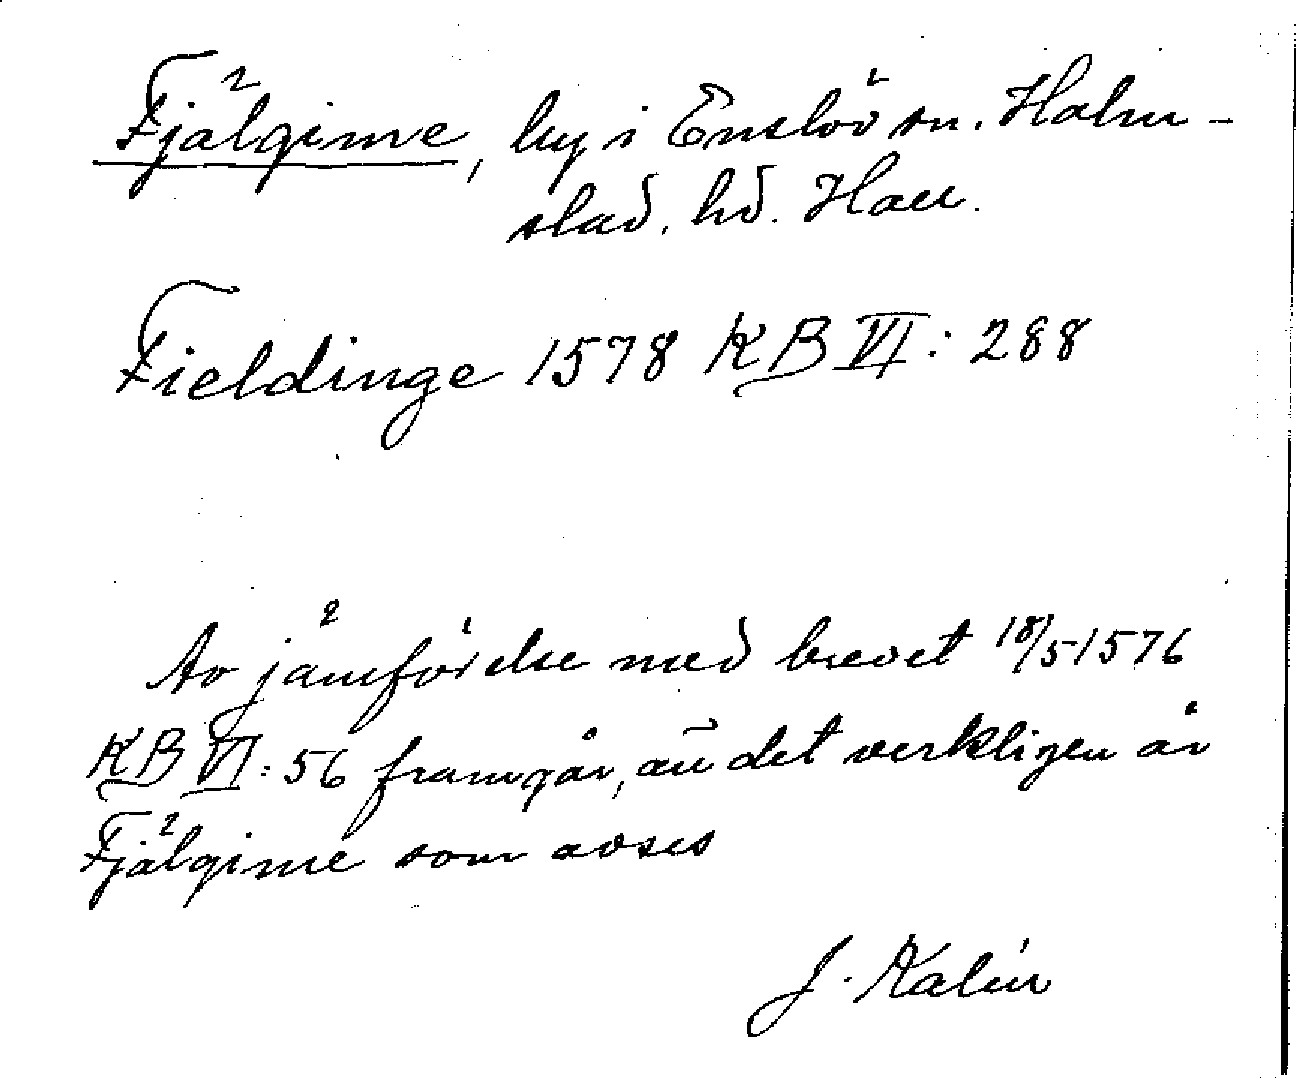 Fjälginne, by i Enslöv sn. Halm-
stad. hd. Hall.
Fieldinge 1578 KB VI: 288
Av jämförelse med brevet 18/5 1576
KB VI: 56 framgår, att det verkligen är
Fjälginne som avses
J. Kalén